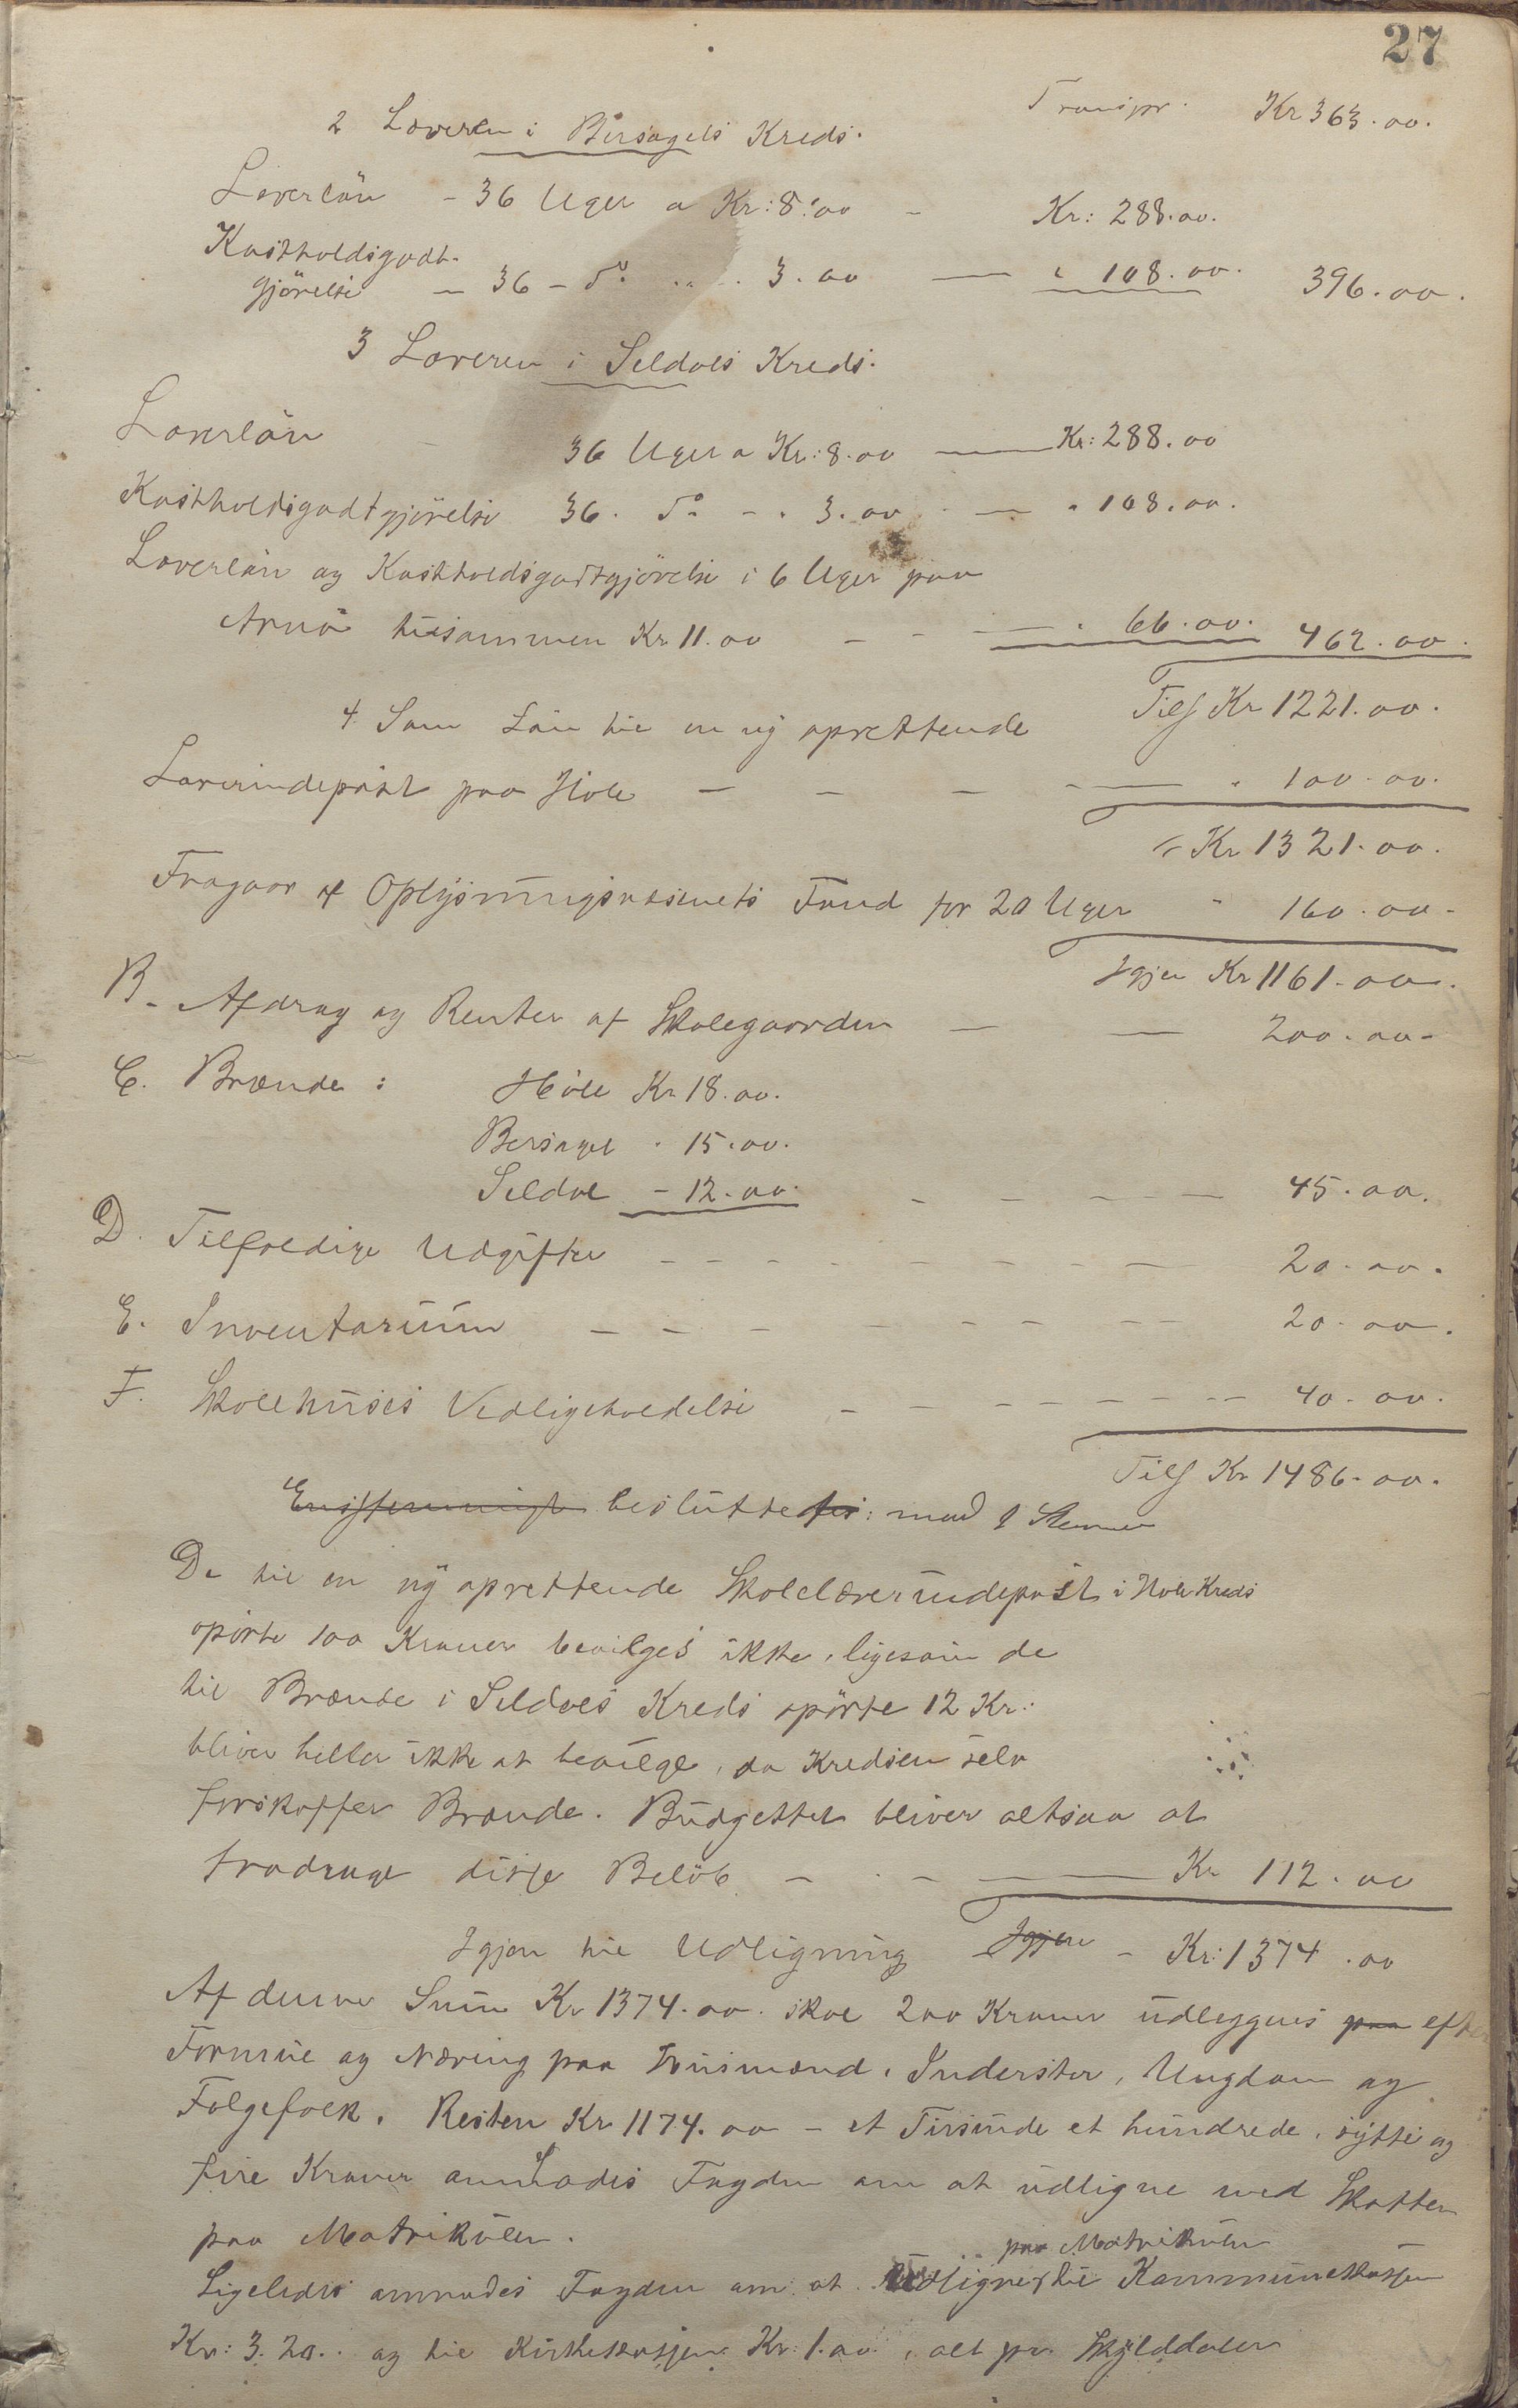 27
Transpr. Kr 363.00.
2 Læreren i Bersagels Kreds.
Lærerlön - 36 Uger a Kr: 8.00 - Kr: 288.00.
Kostholdsgodt-
gjörelse - 36 - do " - 3.00 — " 108.00. 396.00.
3 Læreren i Seldals Kreds.
Lærerlön - 36 Uger a Kr: 8.00 — Kr: 288.00
Kostholdsgodtgjörelse 36. do - " 3.00 — " 108.00.
Lærerlön og Kostholdsgodtgjörelse i 6 Uger paa
Arnö tilsammen Kr 11.00 - - — " 66.00. 462.00.
Tils Kr 1221.00.
4. Som Lön til en ny oprettende
Lærerindepost paa Höle — - - — " 100.00.
Kr 1321.00.
Fragaar af Oplysningsvæsenets Fond for 20 Uger " 160.00-
Igjen Kr 1161.00.
B. Afdrag og Renter af Skolegaarden — — 200.00-
C. Brænde: Höle Kr 18.00.
Bersagel " 15.00.
Seldal - 12.00. - - - - — 45.00.
D. Tilfældige Udgifter - - - - - - - — 20.00.
E. Inventarium - - - - - - - - 20.00.
F. Skolehusets Vedligeholdelse - - - - - - - 40.00.
Tils Kr 1486.00.
Enstemmigt besluttedes: mod 1 Stemme
De til en ny oprettende Skolelærerindepost i Höle Kreds
opförte 100 Kroner bevilges ikke, ligesom de
til Brænde i Seldals Kreds opförte 12 Kr:
bliver heller ikke at bevilge, da Kredsen selv
forskaffer Brænde. Budgettet bliver altsaa at
fradrage disse Belöb - - - — Kr 112.00
Igjen til Udligning Igjen - Kr: 1374.00
Af denne Sum Kr 1374.00. skal 200 Kroner udlegges paa efter
Formue og Næring paa Husmænd, Inderster, Ungdom og
Folgefolk. Resten Kr 1174.00 - et Tusinde et hundrede, sytti og
fire Kroner anmodes Fogden om at udligne med Skatten
paa Matrikulen.
paa Matrikulen
Ligeledes anmodes Fogden om at Udligner til Kommunekassen
Kr: 3.20.. og til Kirkekassen Kr: 1.00, alt pr. Skylddaler